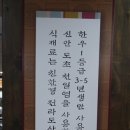 한우1등급 3-5년생만 사용
신안 도초 천일염을 사용
식재료는 친환경 전라도산